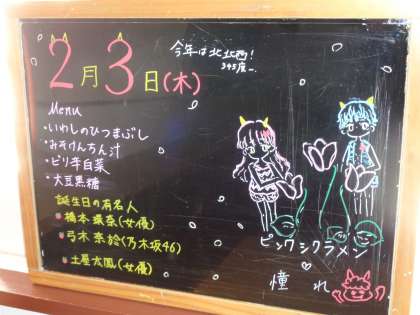 2月3日(木)
今年は北北西!
345度
Menu
・いわしのひつまぶし
・みそけんちん汁
・ピリ辛白菜
・大豆黒糖
誕生日の有名人
橋本環奈(女優)
弓木奈於(乃木坂46)
土屋太鳳(女優)
ピンクシクラメン
憧れ